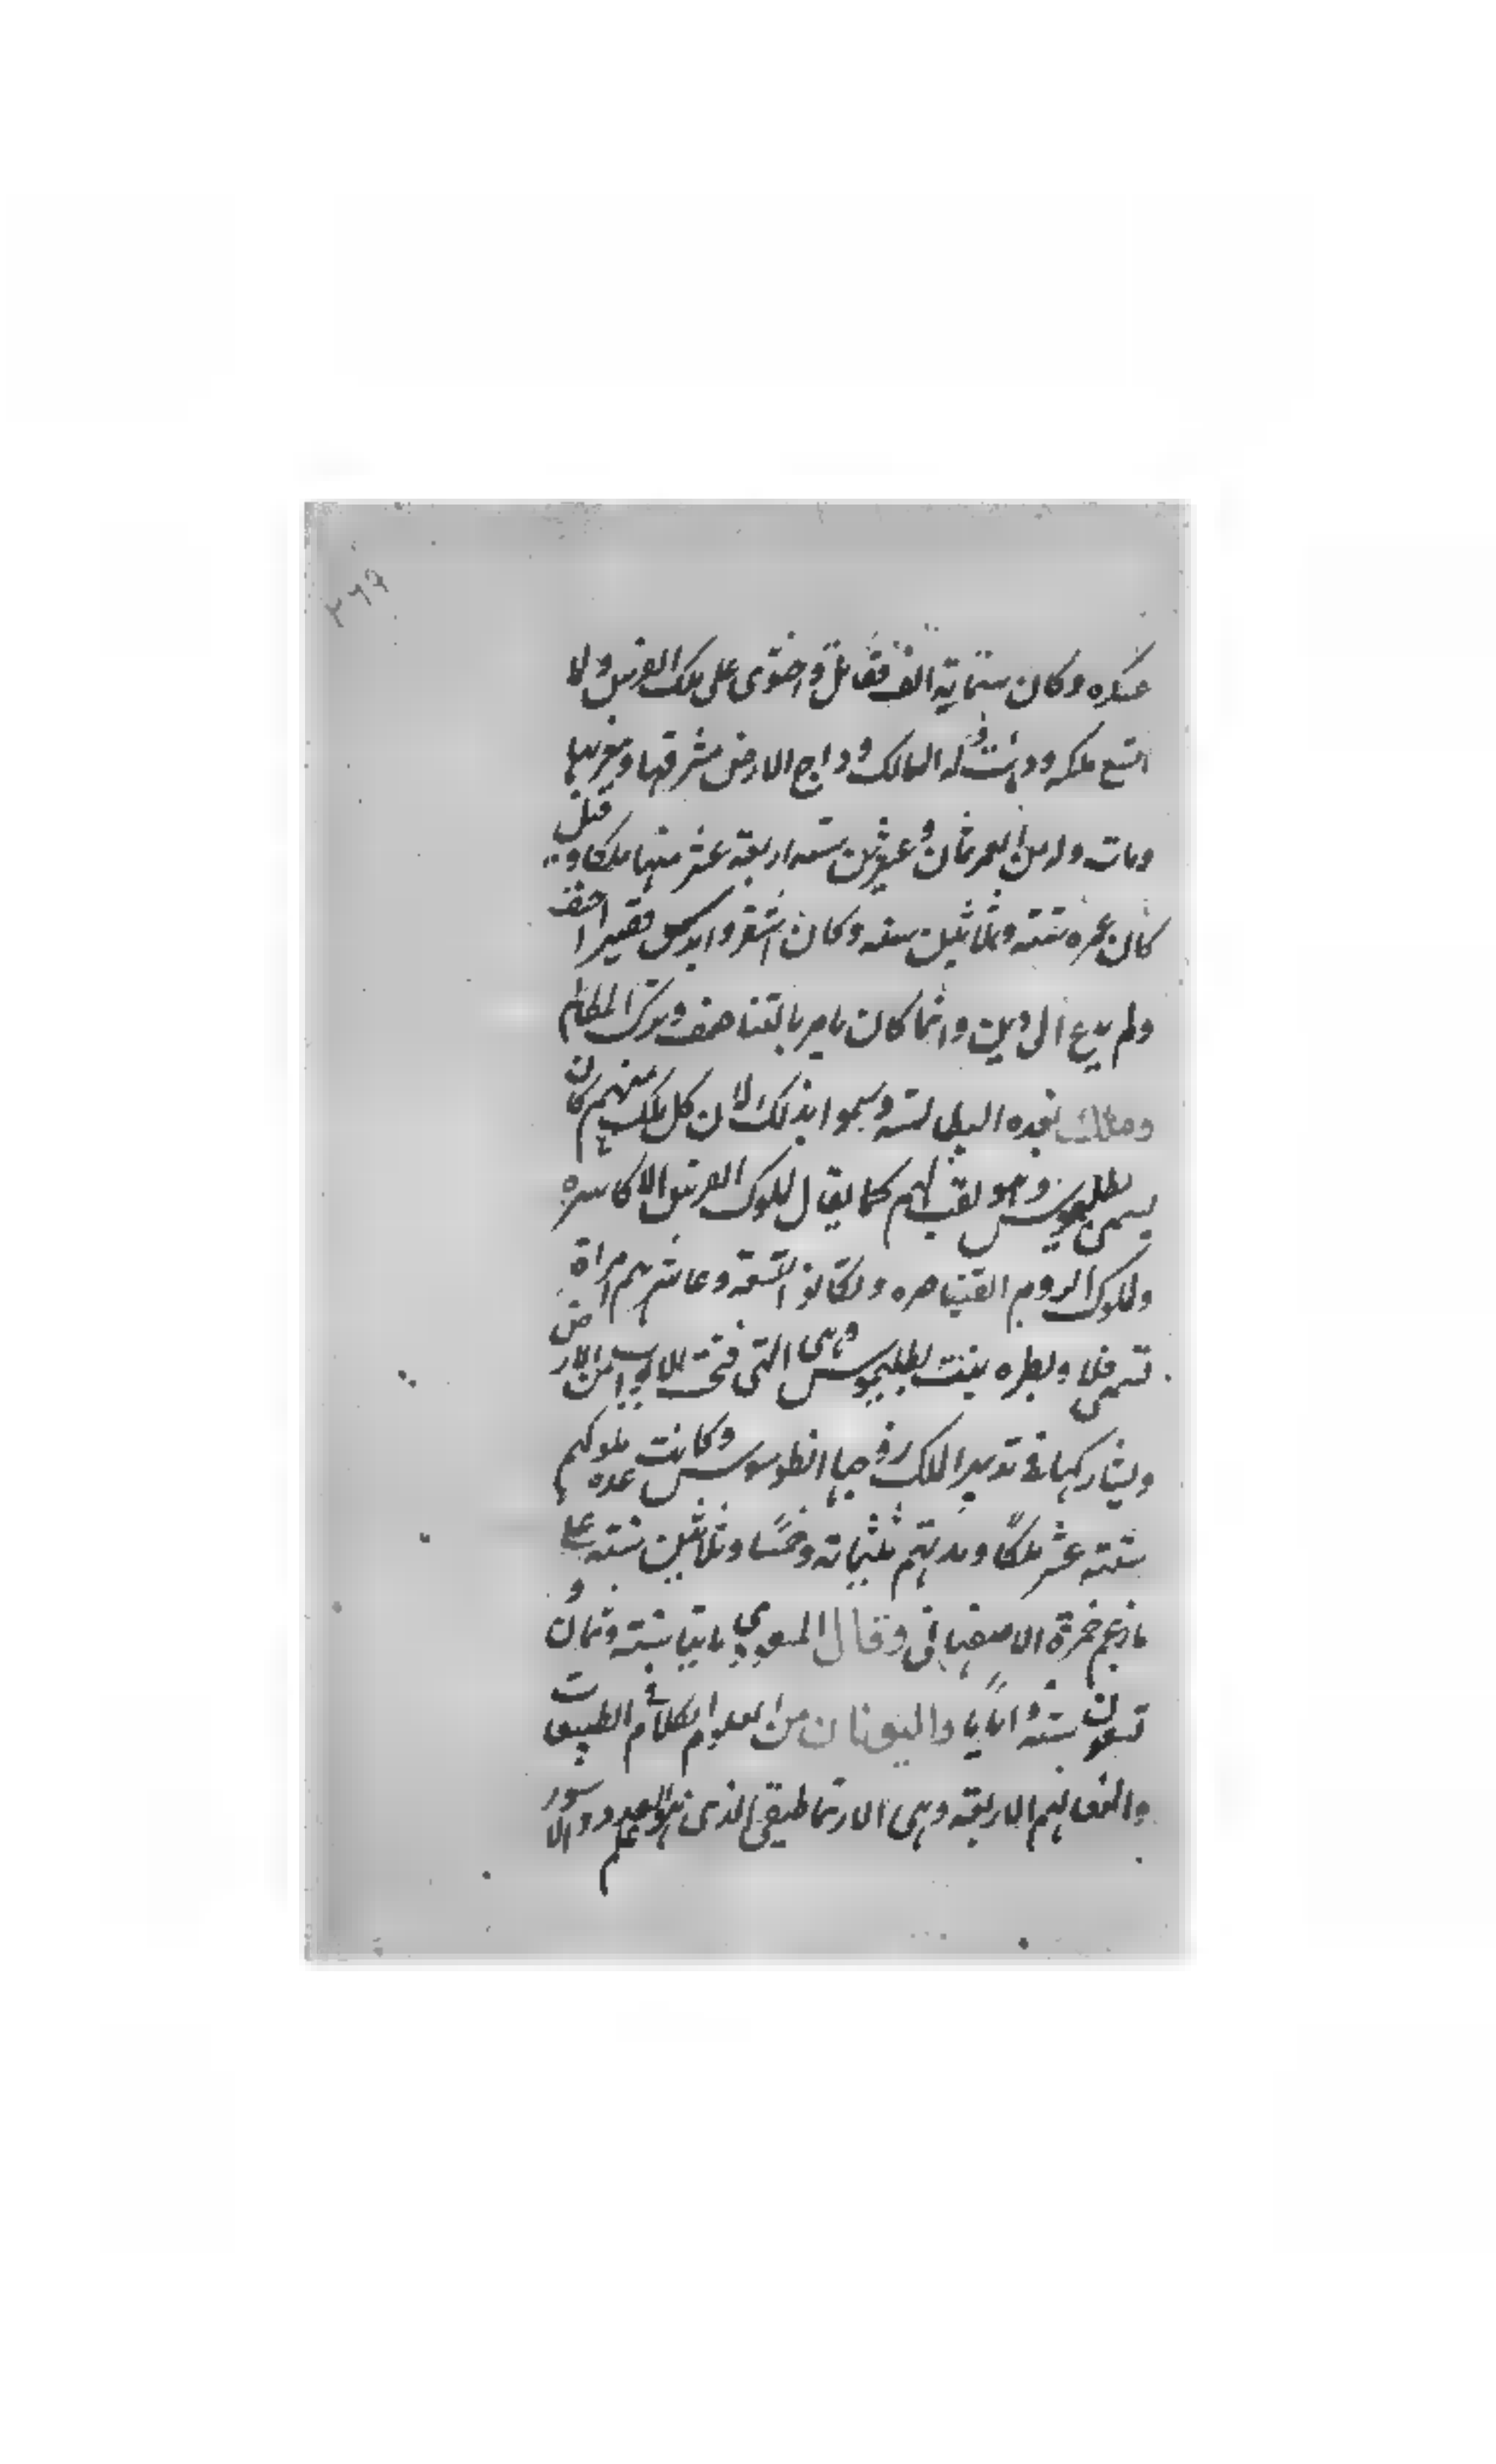 ٢٦٩
عسكره وكان ستماية الف فقاتل واحتوى على ملك الفرس ولما
اتسع ملكه ودانت له الممالك ودوخ الارض مشرقها ومغربها
ومات وله من العمر ثمان وعشرين سنه اربعة عشر منها ملكا وقيل
كان عمره ستة وثلاثين سنه وكان اشقر وابرش قصيرا احنف
ولم يدع الى دين وانما كان يامر بالتناصف وترك المظالم
وملك بعده البطالسة وسموا بذلك لان كل ملك منهم كان
يسمى بطلميوس وهو لقب لهم كما يقال لملوك الفرس الاكاسره
ولملوك الروم القياصره وكانوا تسعة وعاشرهم امراة
تسمى قلاوبطره بنت بطليموس وهى التى فتحت من الارض
ويشاركها فى تدبير الملك زوجها انطوسوس وكانت عدة ملوكهم
ستة عشر ملكًا ومدتهم ثلثماته وخمسًا وثلاثين سنه على
ما زعم حمزة الاصفهانى وقال المسعودي مايتا سنة وثمان و
تسعون سنة واياما واليونان من العلوم الكلام فى الطبيعيات
والمقاليم الاربعة وهى الارتماطيقى الذى هو علم العدد والا